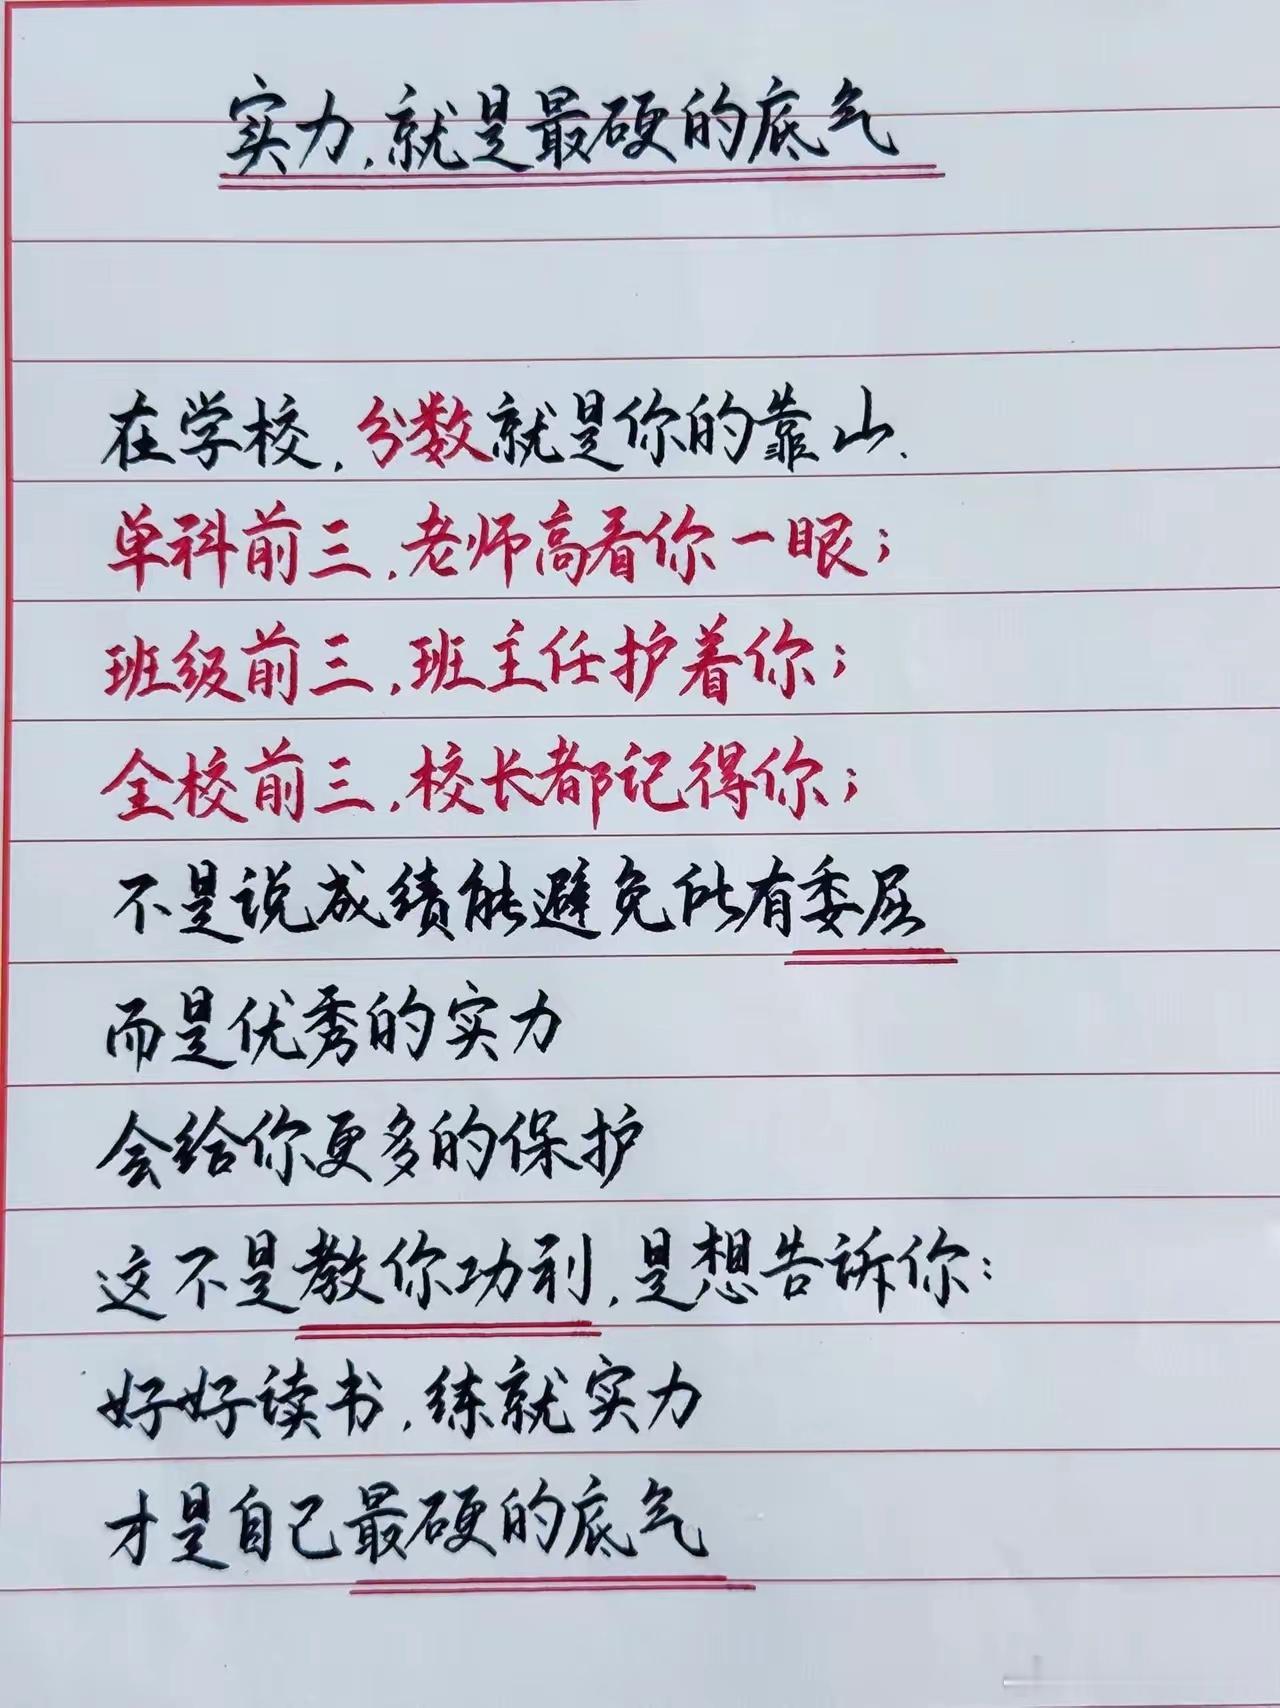 实力,就是最硬的底气
在学校,分数就是你的靠山.
单科前三,老师高看你一眼;
班级前三,班主任护着你;
全校前三,校长都记得你;
不是说成绩能避免所有委屈
而是优秀的实力
会给你更多的保护
这不是教你功利,是想告诉你:
好好读书,练就实力
才是自己最硬的底气